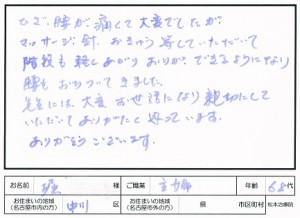 ひざ、腰が痛くて大変でしたが、
マッサージ、針、おきゅう等していただいて
階段も軽くあがりおりが、できるようになり
腰もおちついてきました。
先生には、大変お世話になり親切にして
いただいてありがたく思っています。
ありがとうございます。
お名前 様 ご職業 主婦 年齢 68代
お住まいの地域（名古屋市内の方） 中川 区 お住まいの地域（名古屋市外の方） 県 市区町村 松本治療院